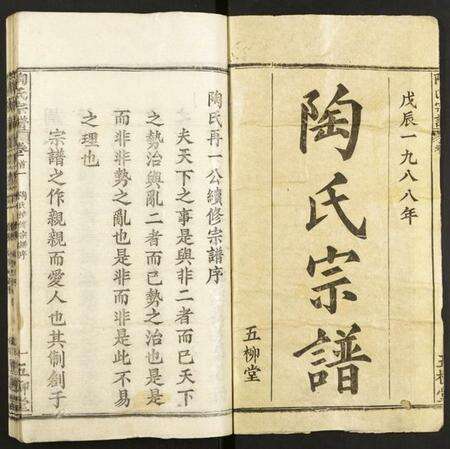 戊辰一九八八年
陶氏宗譜
五柳堂
陶氏再一公續修宗譜序
夫天下之事是與非二者而已天下
之勢治與亂二者而已勢之治也是是
而非非勢之亂也是非而非是此不易
之理也
宗譜之作親親而愛人也其制創于
陶氏宗譜
卷首
一
五柳堂